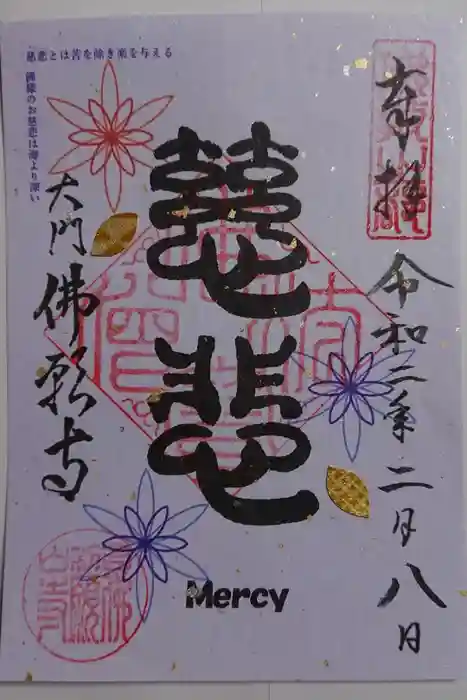 慈悲とは苦を除き楽を与える
佛様のお慈悲は海より深い
奉拝
令和二年二月八日
慈悲
Mercy
大門佛願寺